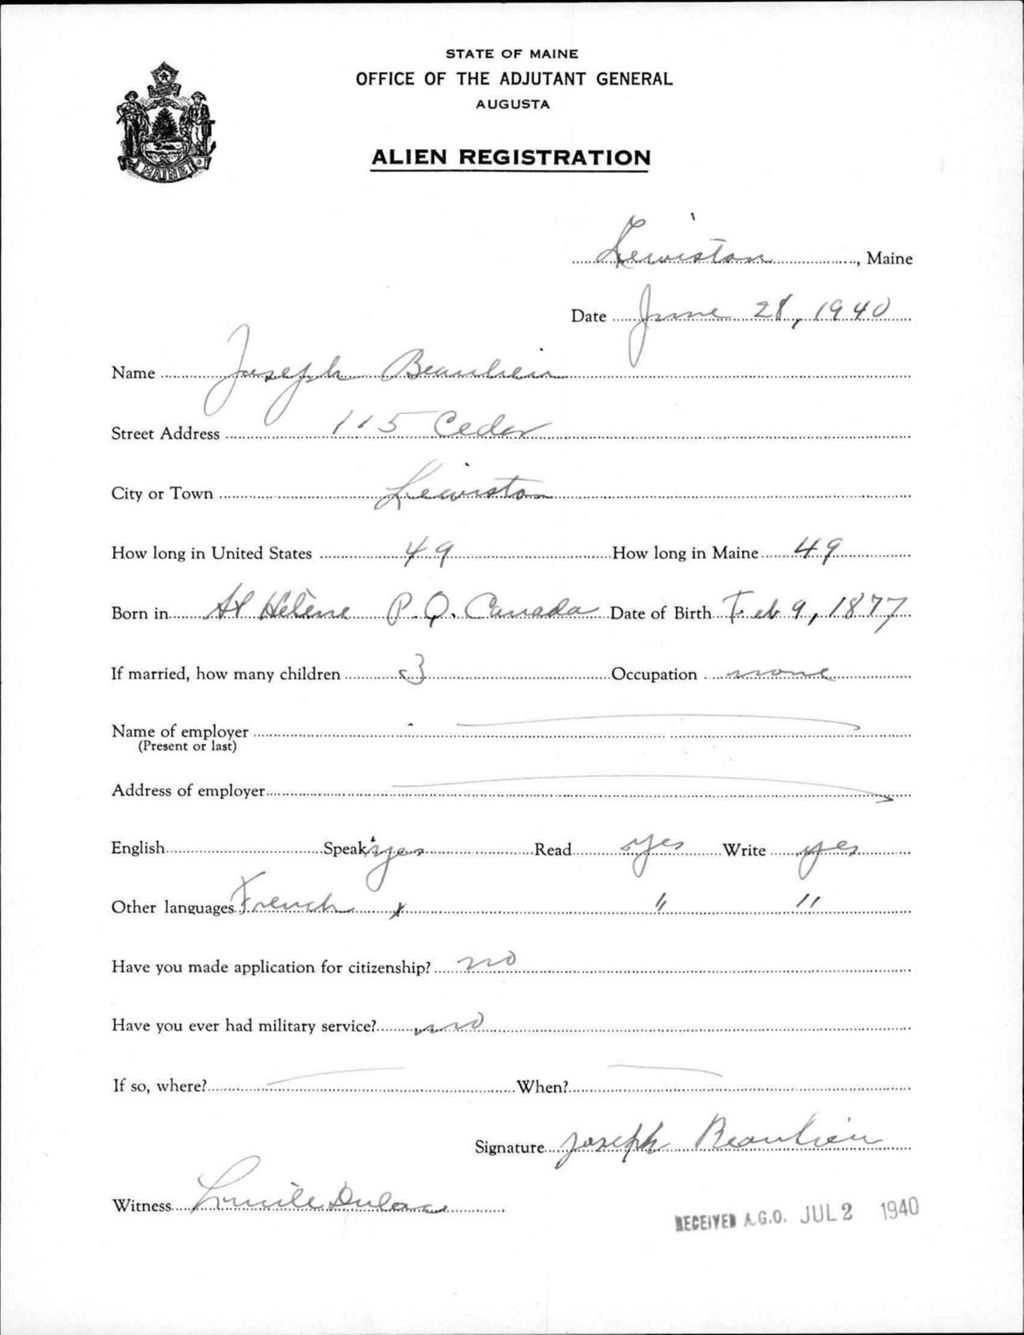 STATE OF MAINE
OFFICE OF THE ADJUTANT GENERAL
AUGUSTA
ALIEN REGISTRATION
MAINE
Lewiston, Maine
Date June 28, 1940
Name Joseph Beaulieu
Street Address 115 Cedar
City or Town Lewiston
How long in United States 49 How long in Maine 49
Born in St Helène P.Q. Canada Date of Birth Feb 9, 1877
If married, how many children 3 Occupation none
Name of employer
(Present or last)
Address of employer
English Speak yes Read yes Write yes
Other languages French x " "
Have you made application for citizenship? no
Have you ever had military service? no
If so, where? When?
Signature Joseph Beaulieu
Witness Lucille
RECEIVED A.G.O. JUL 2 1940